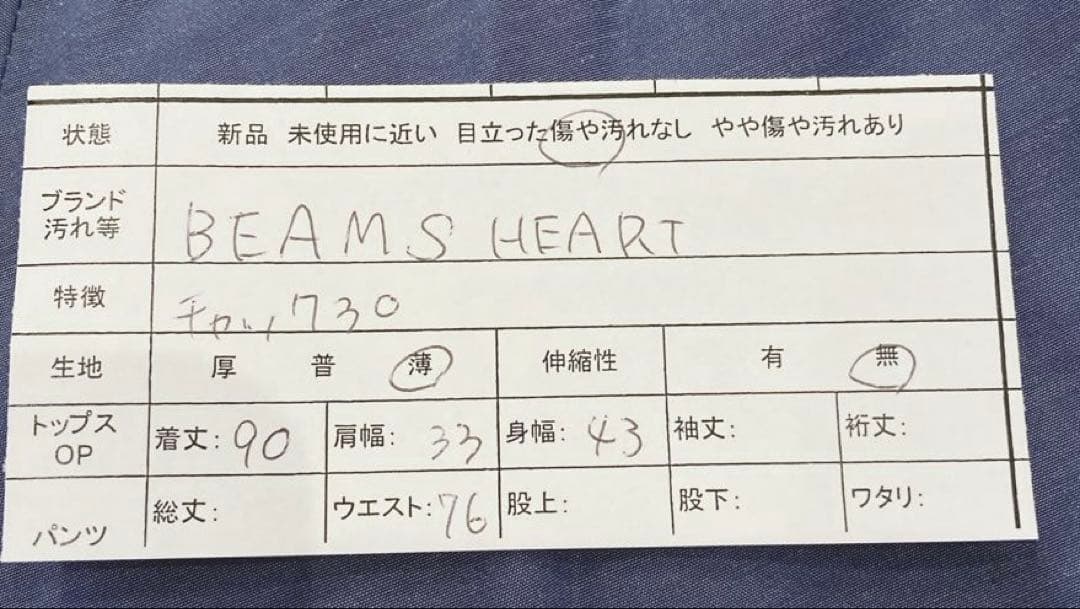 状態 新品 未使用に近い 目立った傷や汚れなし やや傷や汚れあり
ブランド
汚れ等
BEAMS HEART
特徴 チャック730
生地 厚 普 薄 伸縮性 有 無
トップス
OP
着丈: 90 肩幅: 33 身幅: 43 袖丈: 裄丈:
パンツ 総丈: ウエスト: 76 股上: 股下: ワタリ: